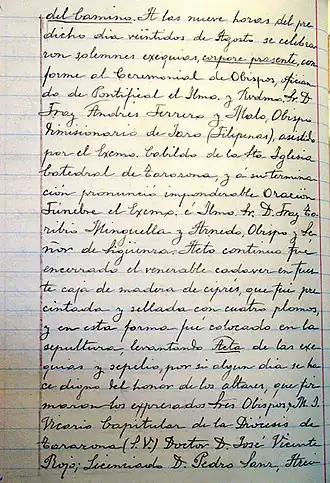 del Camino. A las nueve horas del pre
dicho día veintidos de Agosto se celebra
ron solemnes exequias, corpore presente, con
forme al Ceremonial de Obispos, ofician
do de Pontifical el Ilmo. y Rvdmo. Sr. D.
Fray Andres Ferrero y Malo, Obispo
dimisionario de Jaro (Filipinas), asistido
por el Excmo. Cabildo de la Sta Iglesia
Catedral de Tarazona, y a su termina
ción pronunció imponderable Oración
Fúnebre el Excmo. é Ilmo. Sr. D. Fray To
ribio Minguella y Arnedo, Obispo y Se
ñor de Sigüenza. Acto continuo fue
encerrado el venerable cadaver en fuer
te caja de madera de ciprés, que fué pre
cintada y sellada con cuatro plomos,
y en esta forma fué colocado en la
sepultura, levantando Acta de las exe
quias y sepelio, por si algun dia se ha
ce digno del honor de los altares, que fir
maron los expresados Sres Obispos, M. I.
Vicario Capitular de la Diócesis de
Tarazona (S. V.) Doctor D. José Vicente
Rojo; Licenciado D. Pedro Sanz,